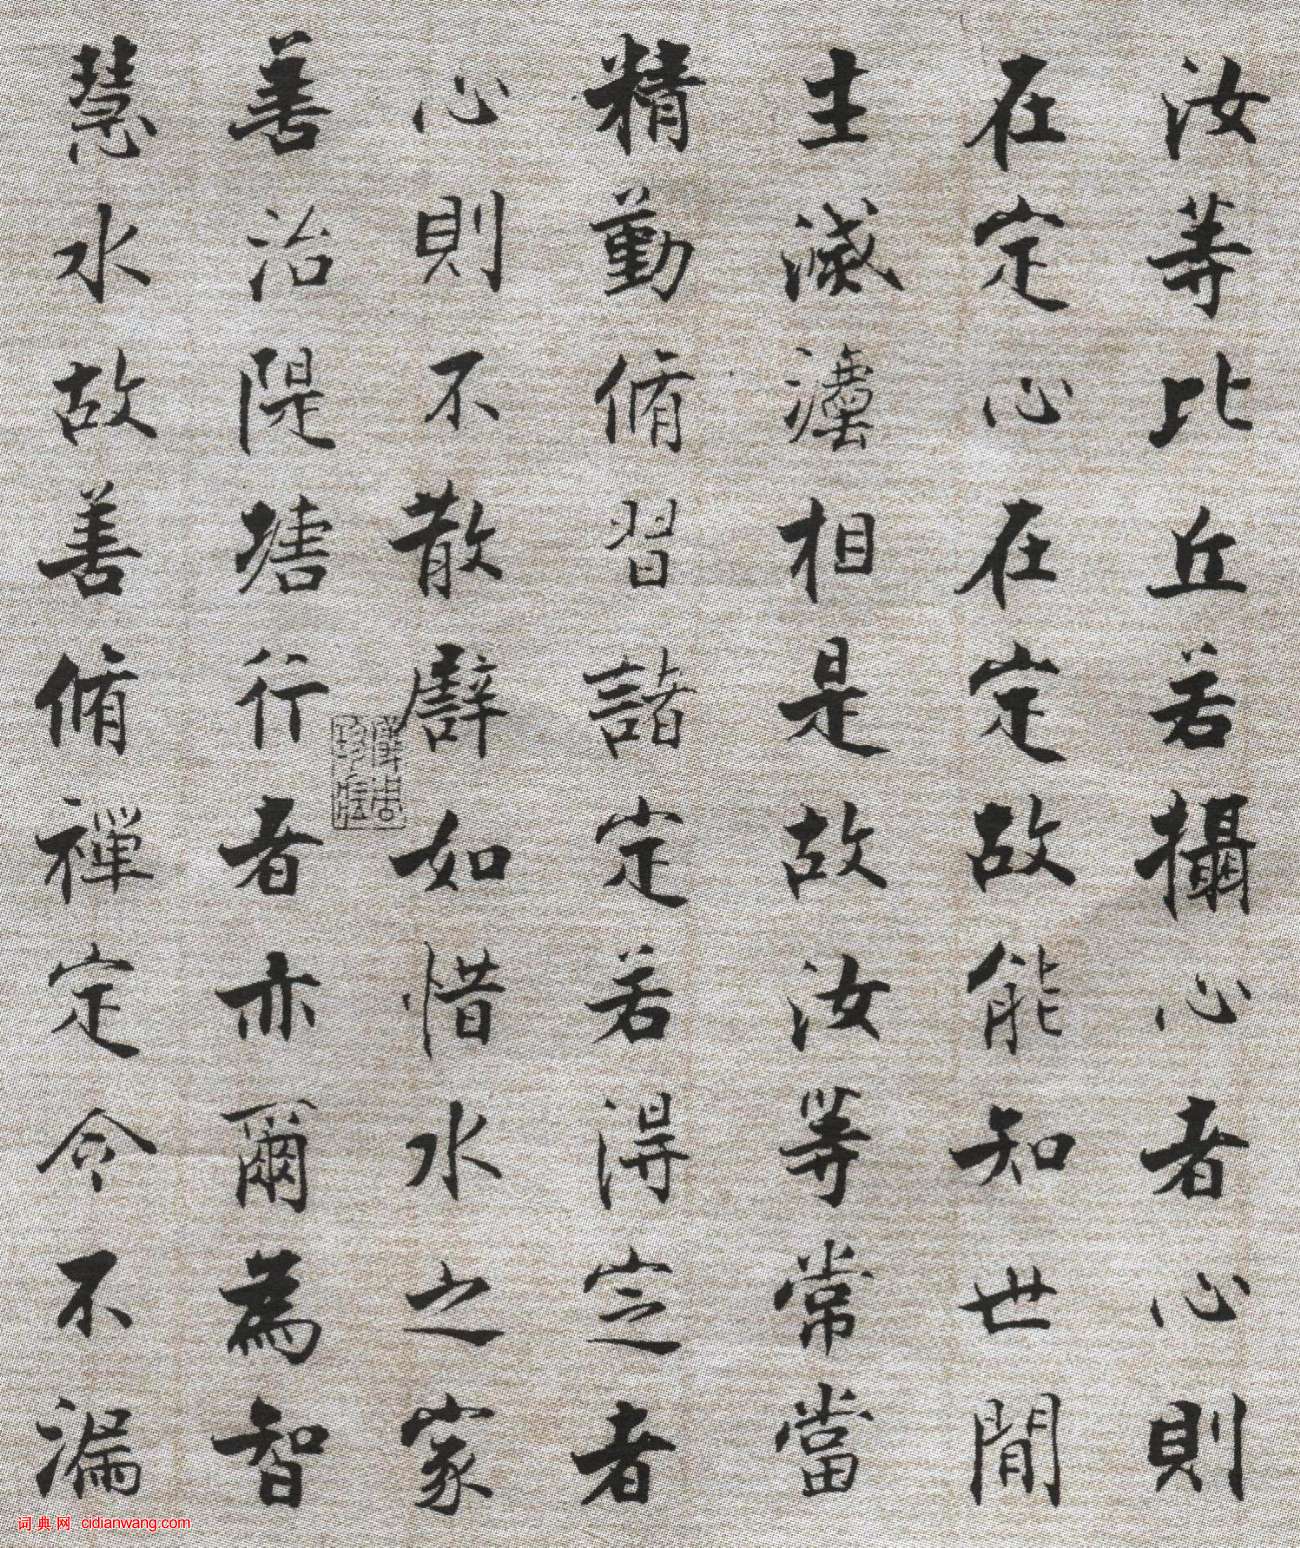 汝等比丘若攝心者心則
在定心在定故能知世間
生滅灋相是故汝等常當
精勤脩習諸定若得定者
心則不散譬如惜水之家
善治隄塘行者亦爾為智
慧水故善脩禪定令不漏
词典网 cidianwang.com